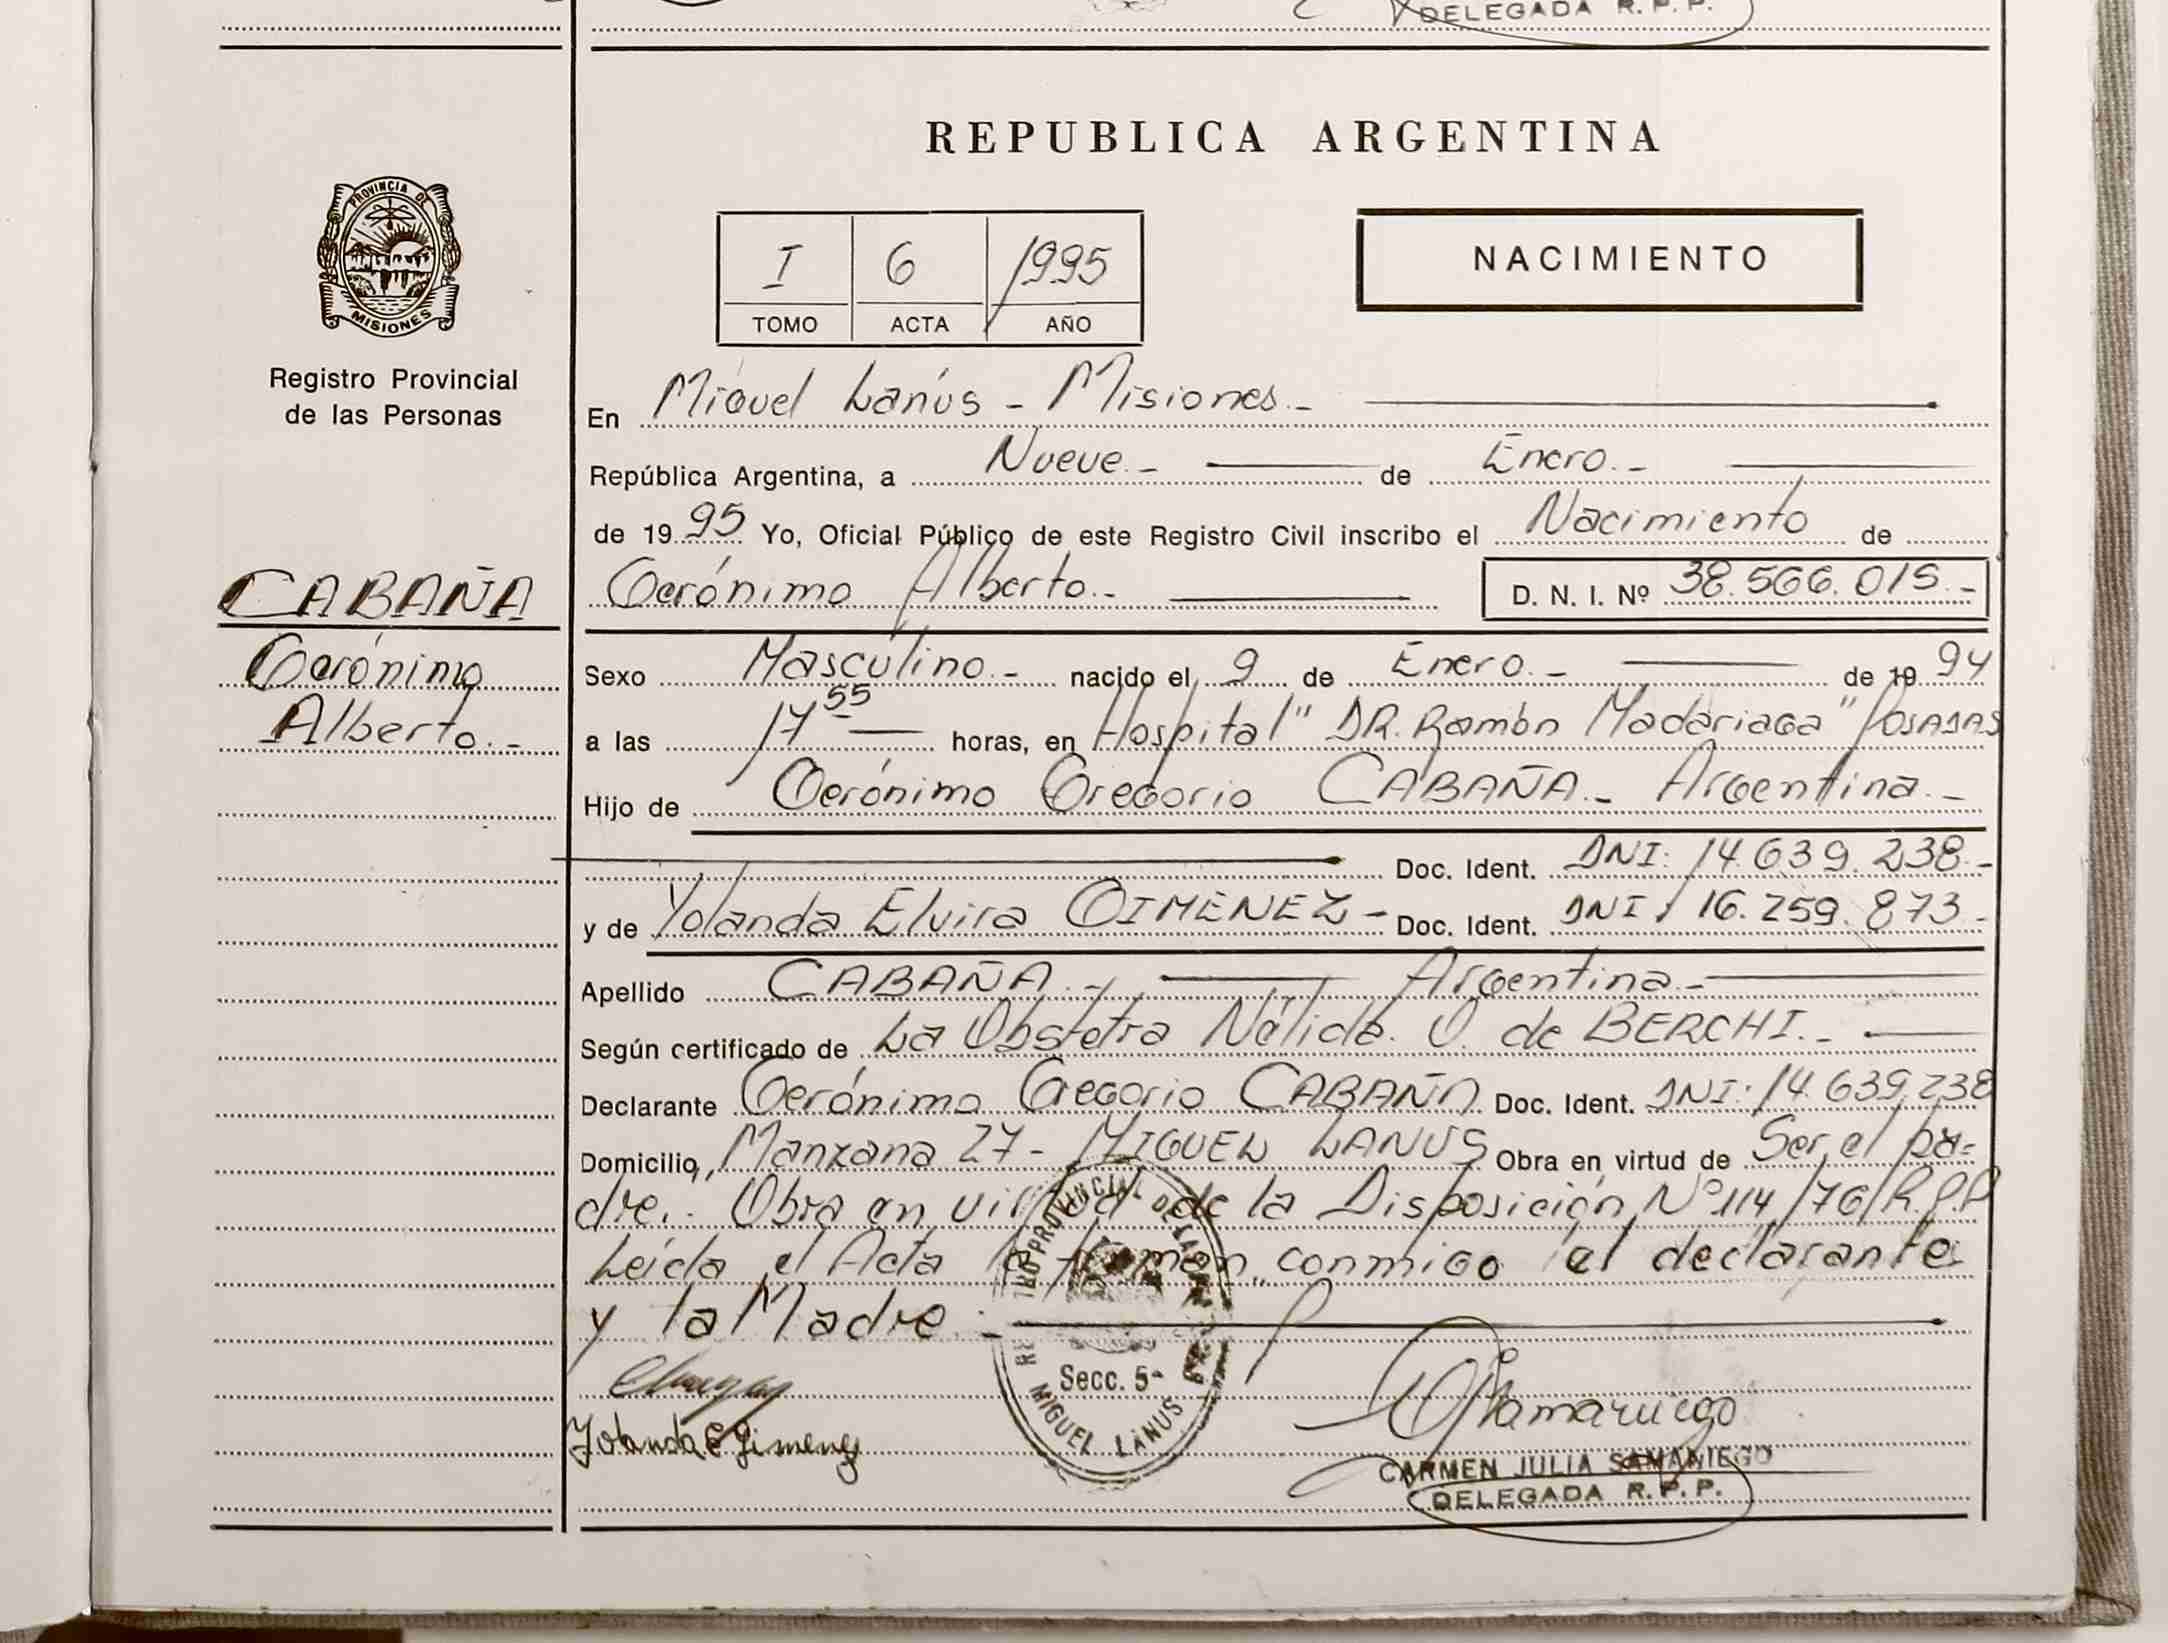 DELEGADA R.P.P.
REPUBLICA ARGENTINA
PROVINCIA DE
MISIONES
Registro Provincial
de las Personas
I 6 1995
TOMO ACTA AÑO
NACIMIENTO
En Miguel Lanús - Misiones.-
República Argentina, a Nueve.- de Enero.-
de 19 95 Yo, Oficial Público de este Registro Civil inscribo el Nacimiento de
CABAÑA
Gerónimo Alberto.- D. N. I. Nº 38.566.015.-
Gerónimo
Alberto.-
Sexo Masculino.- nacido el 9 de Enero.- de 19 94
a las 17 55 horas, en Hospital "DR. Ramón Madariaga" POSADAS
Hijo de Gerónimo Gregorio CABAÑA.- Argentina.-
Doc. Ident. DNI: 14.639.238.-
y de Yolanda Elvira GIMENEZ - Doc. Ident. DNI: 16.259.873.-
Apellido CABAÑA.- Argentina.-
Según certificado de La Obstetra Nélida. O. de BERCHI.-
Declarante Gerónimo Gregorio CABAÑA Doc. Ident. DNI: 14.639.238
Domicilio Manzana 27 - MIGUEL LANUS Obra en virtud de Ser el pa-
dre.- Obra en virtud de la Disposición Nº 114/76/R.P.P
Leída el Acta la firman conmigo el declarante
y la Madre.-
PROVINCIAL DE LAS
Secc. 5ª
MIGUEL LANUS
Yolanda E Gimenez
CARMEN JULIA SAMANIEGO
DELEGADA R.P.P.